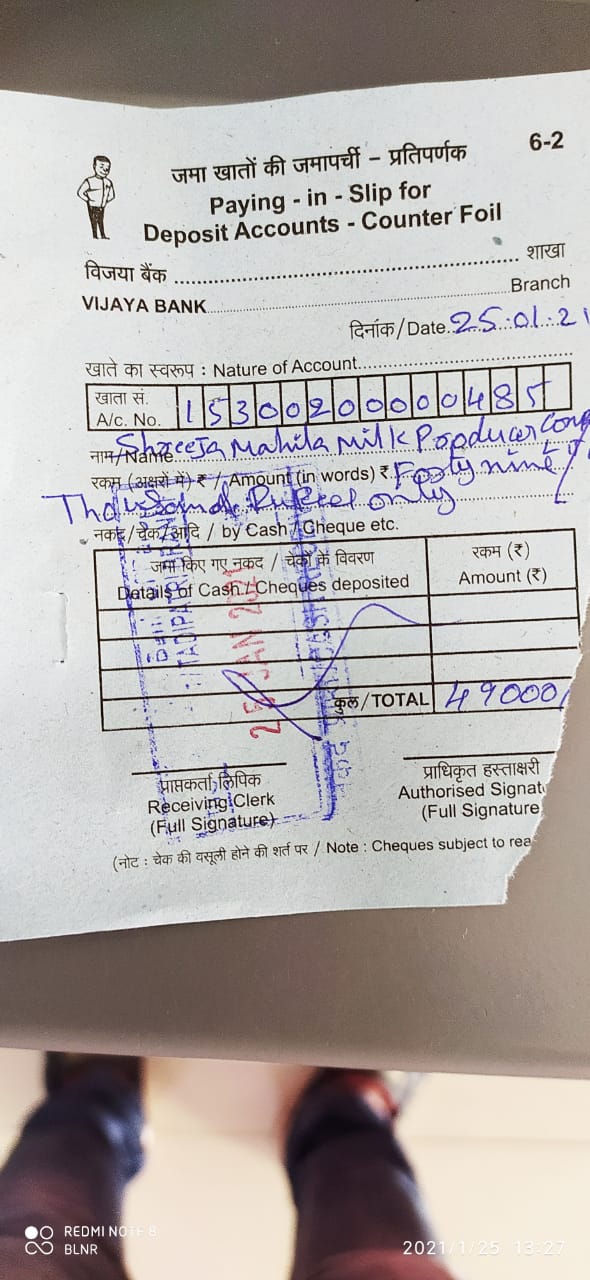 6-2
जमा खातों की जमापर्ची – प्रतिपर्णक
Paying - in - Slip for
Deposit Accounts - Counter Foil
विजया बैंक ........ शाखा
VIJAYA BANK ........ Branch
दिनांक/Date. 25.01.21
खाते का स्वरूप : Nature of Account
खाता सं.
A/c. No. 153002000000485
नाम/Name Shreeja Mahila Milk Producer
रकम (अक्षरों में) ₹ / Amount (in words) ₹ Forty nine
Thousand Rupees only
नकद/चेक/आदि / by Cash / Cheque etc.
जमा किए गए नकद / चेकों के विवरण रकम (₹)
Details of Cash / Cheques deposited Amount (₹)
25 JAN 2021
कुल/TOTAL 49000/
प्राप्तकर्ता लिपिक प्राधिकृत हस्ताक्षरी
Receiving Clerk Authorised Signat
(Full Signature) (Full Signature
(नोट : चेक की वसूली होने की शर्त पर / Note : Cheques subject to rea
REDMI NOTE 8
BLNR
2021/1/25 13:27